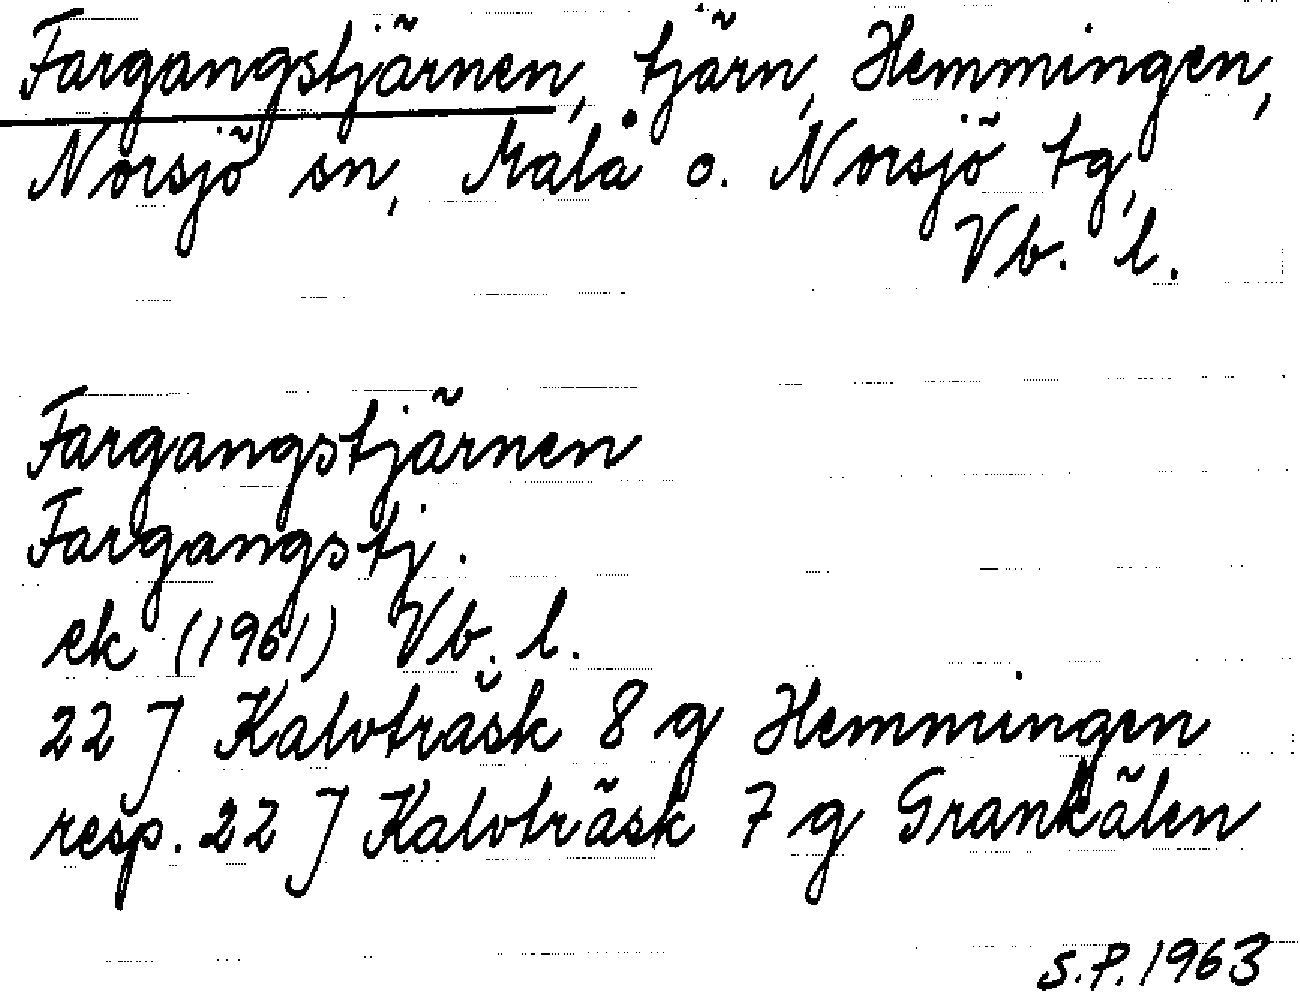 Fargangstjärnen, tjärn, Hemmingen,
Norsjö sn, Malå o. Norsjö tg,
Vb. l.
Fargangstjärnen
Fargangstj.
ek (1961) Vb. l.
22 J Kalvträsk 8 g Hemmingen
resp. 22 J Kalvträsk 7 g Grankälen
S.P. 1963